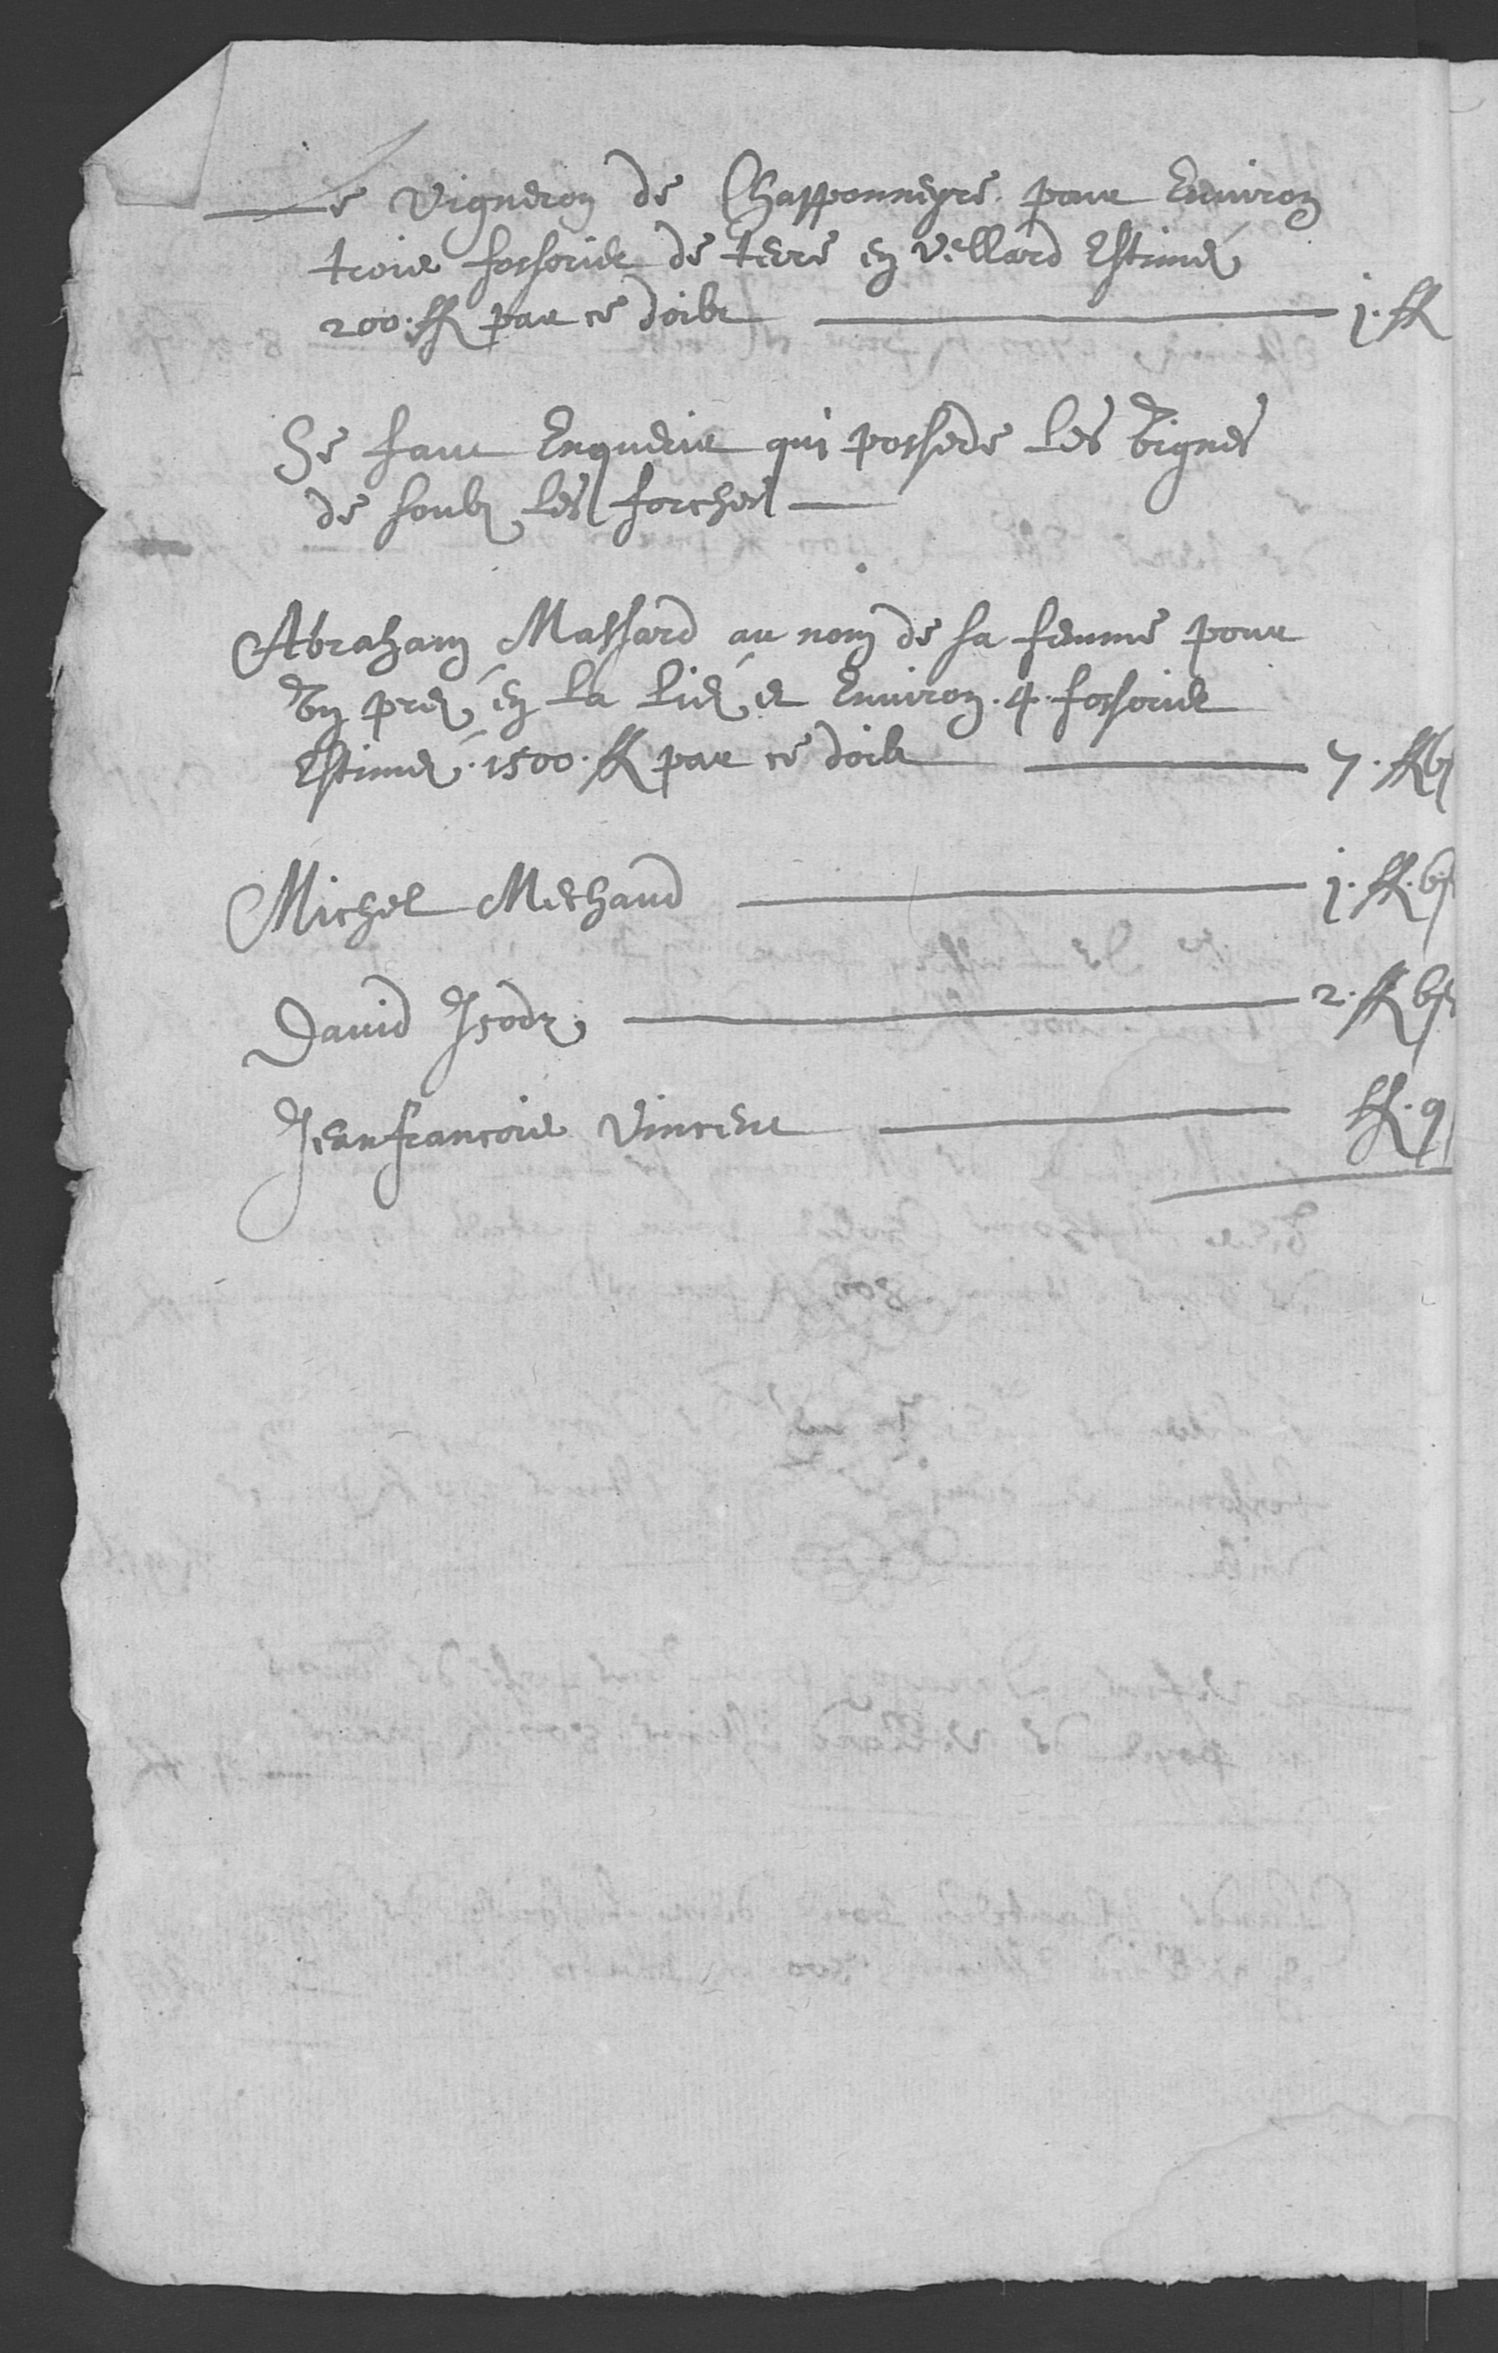 Le Vigneron de Chapponneyre pour Environ
trois fossorier de terre en Vellard Estimé
200 ff par ce doibt 1 ff
Se faut Enquerir qui possede les Vignes
de soubz les forches
Abraham Massard au nom de sa femme pour
Un prez en la Liez et Environ 4 fossorier
Estimez 1500 ff par ce doibt 7 ff vj
Michel Mechaud 1 ff vj
David Isodz 2 ff vj
Jeanfrancois Vincent ff 9